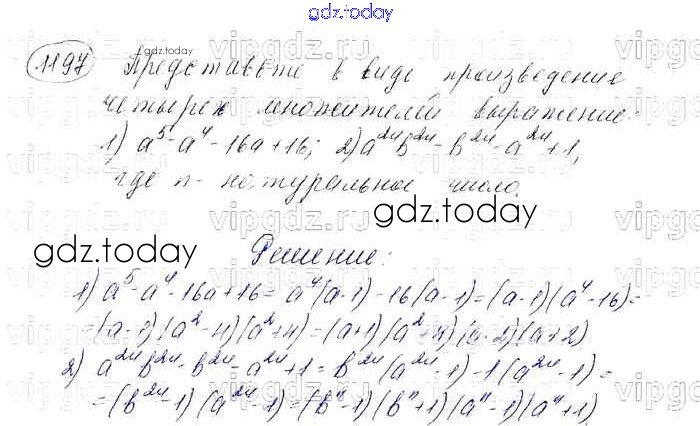 gdz.today
1197 Представьте в виде произведения
четырех множителей выражение:
1) a⁵ - a⁴ - 16a + 16; 2) a²ⁿb²ⁿ - b²ⁿ - a²ⁿ + 1,
где n - натуральное число.
Решение:
1) a⁵ - a⁴ - 16a + 16 = a⁴(a-1) - 16(a-1) = (a-1)(a⁴-16) =
= (a-1)(a²-4)(a²+4) = (a+1)(a²+4)(a-2)(a+2)
2) a²ⁿb²ⁿ - b²ⁿ - a²ⁿ + 1 = b²ⁿ(a²ⁿ-1) - 1(a²ⁿ-1) =
= (b²ⁿ-1)(a²ⁿ-1) = (bⁿ-1)(bⁿ+1)(aⁿ-1)(aⁿ+1).
gdz.today
gdz.today
gdz.today
gdz.today
vipgdz.ru